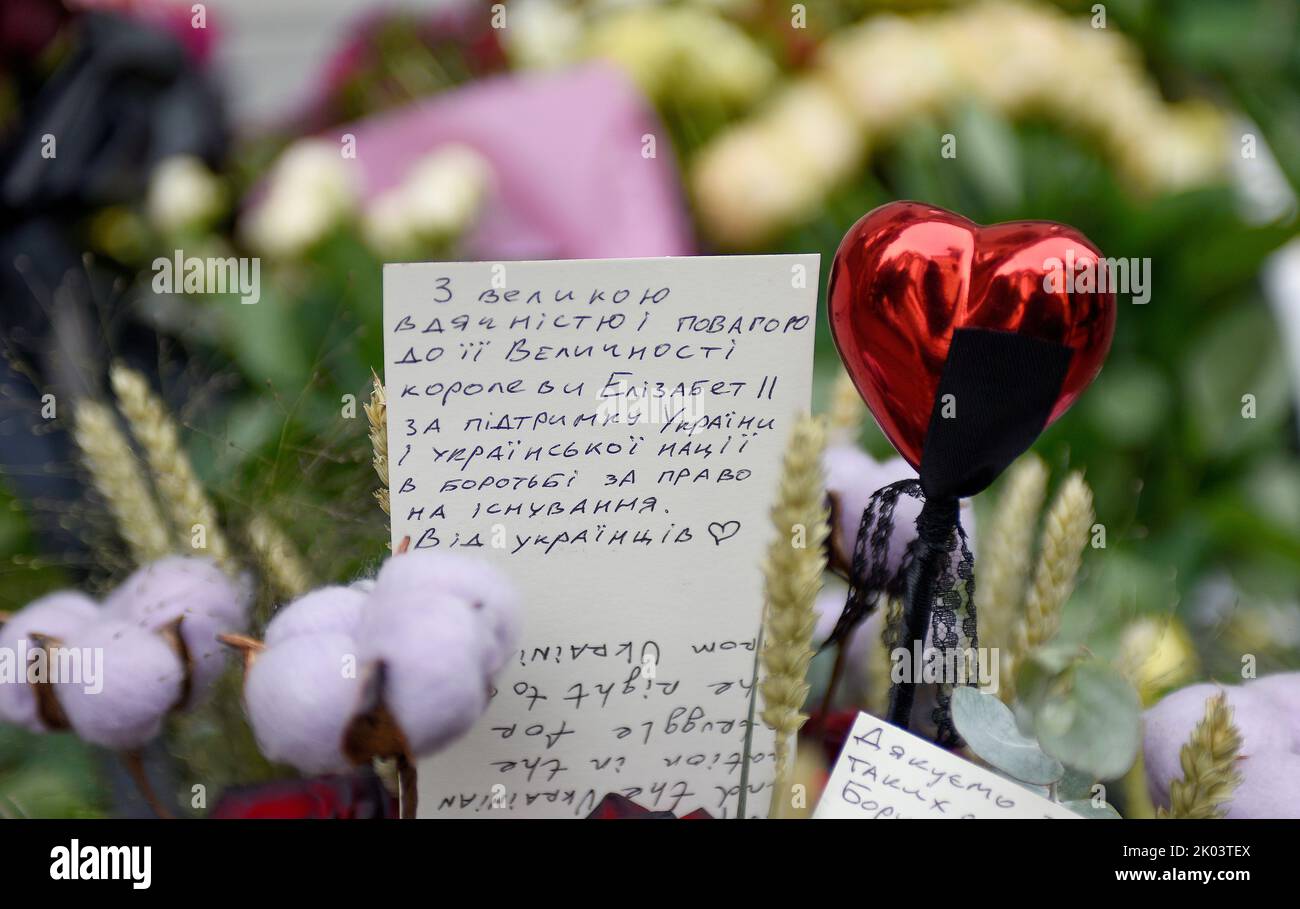 З великою
вдячністю і повагою
до її Величності
королеви Елізабет II
за підтримку України
і української нації
в боротьбі за право
на існування.
Від українців ♡
From Ukraini
he right to
truggle for
ation in the
nd the Ukrainian
Дякуємо
таких
a alamy
alamy
Image ID: 2K03TEX
www.alamy.com